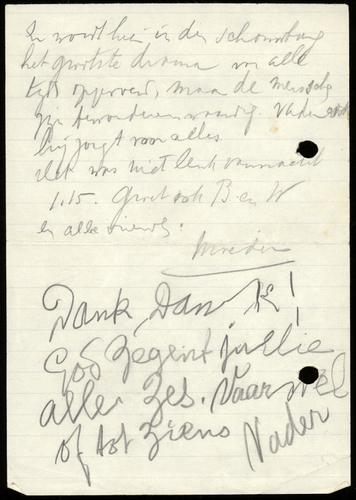 Er wordt hier in den schouwburg
het grootste drama van alle
tijd opgevoerd, maar de mensch
zijn bewonderenswaardig. Vader
hij zorgt voor alles
Het was niet leuk vannacht
1.15. Groet ook B en W
en alle vrienden.
Moeder
Dank, Dank!
God zegent jullie
alle zes. Vaarwel
of tot ziens
Vader